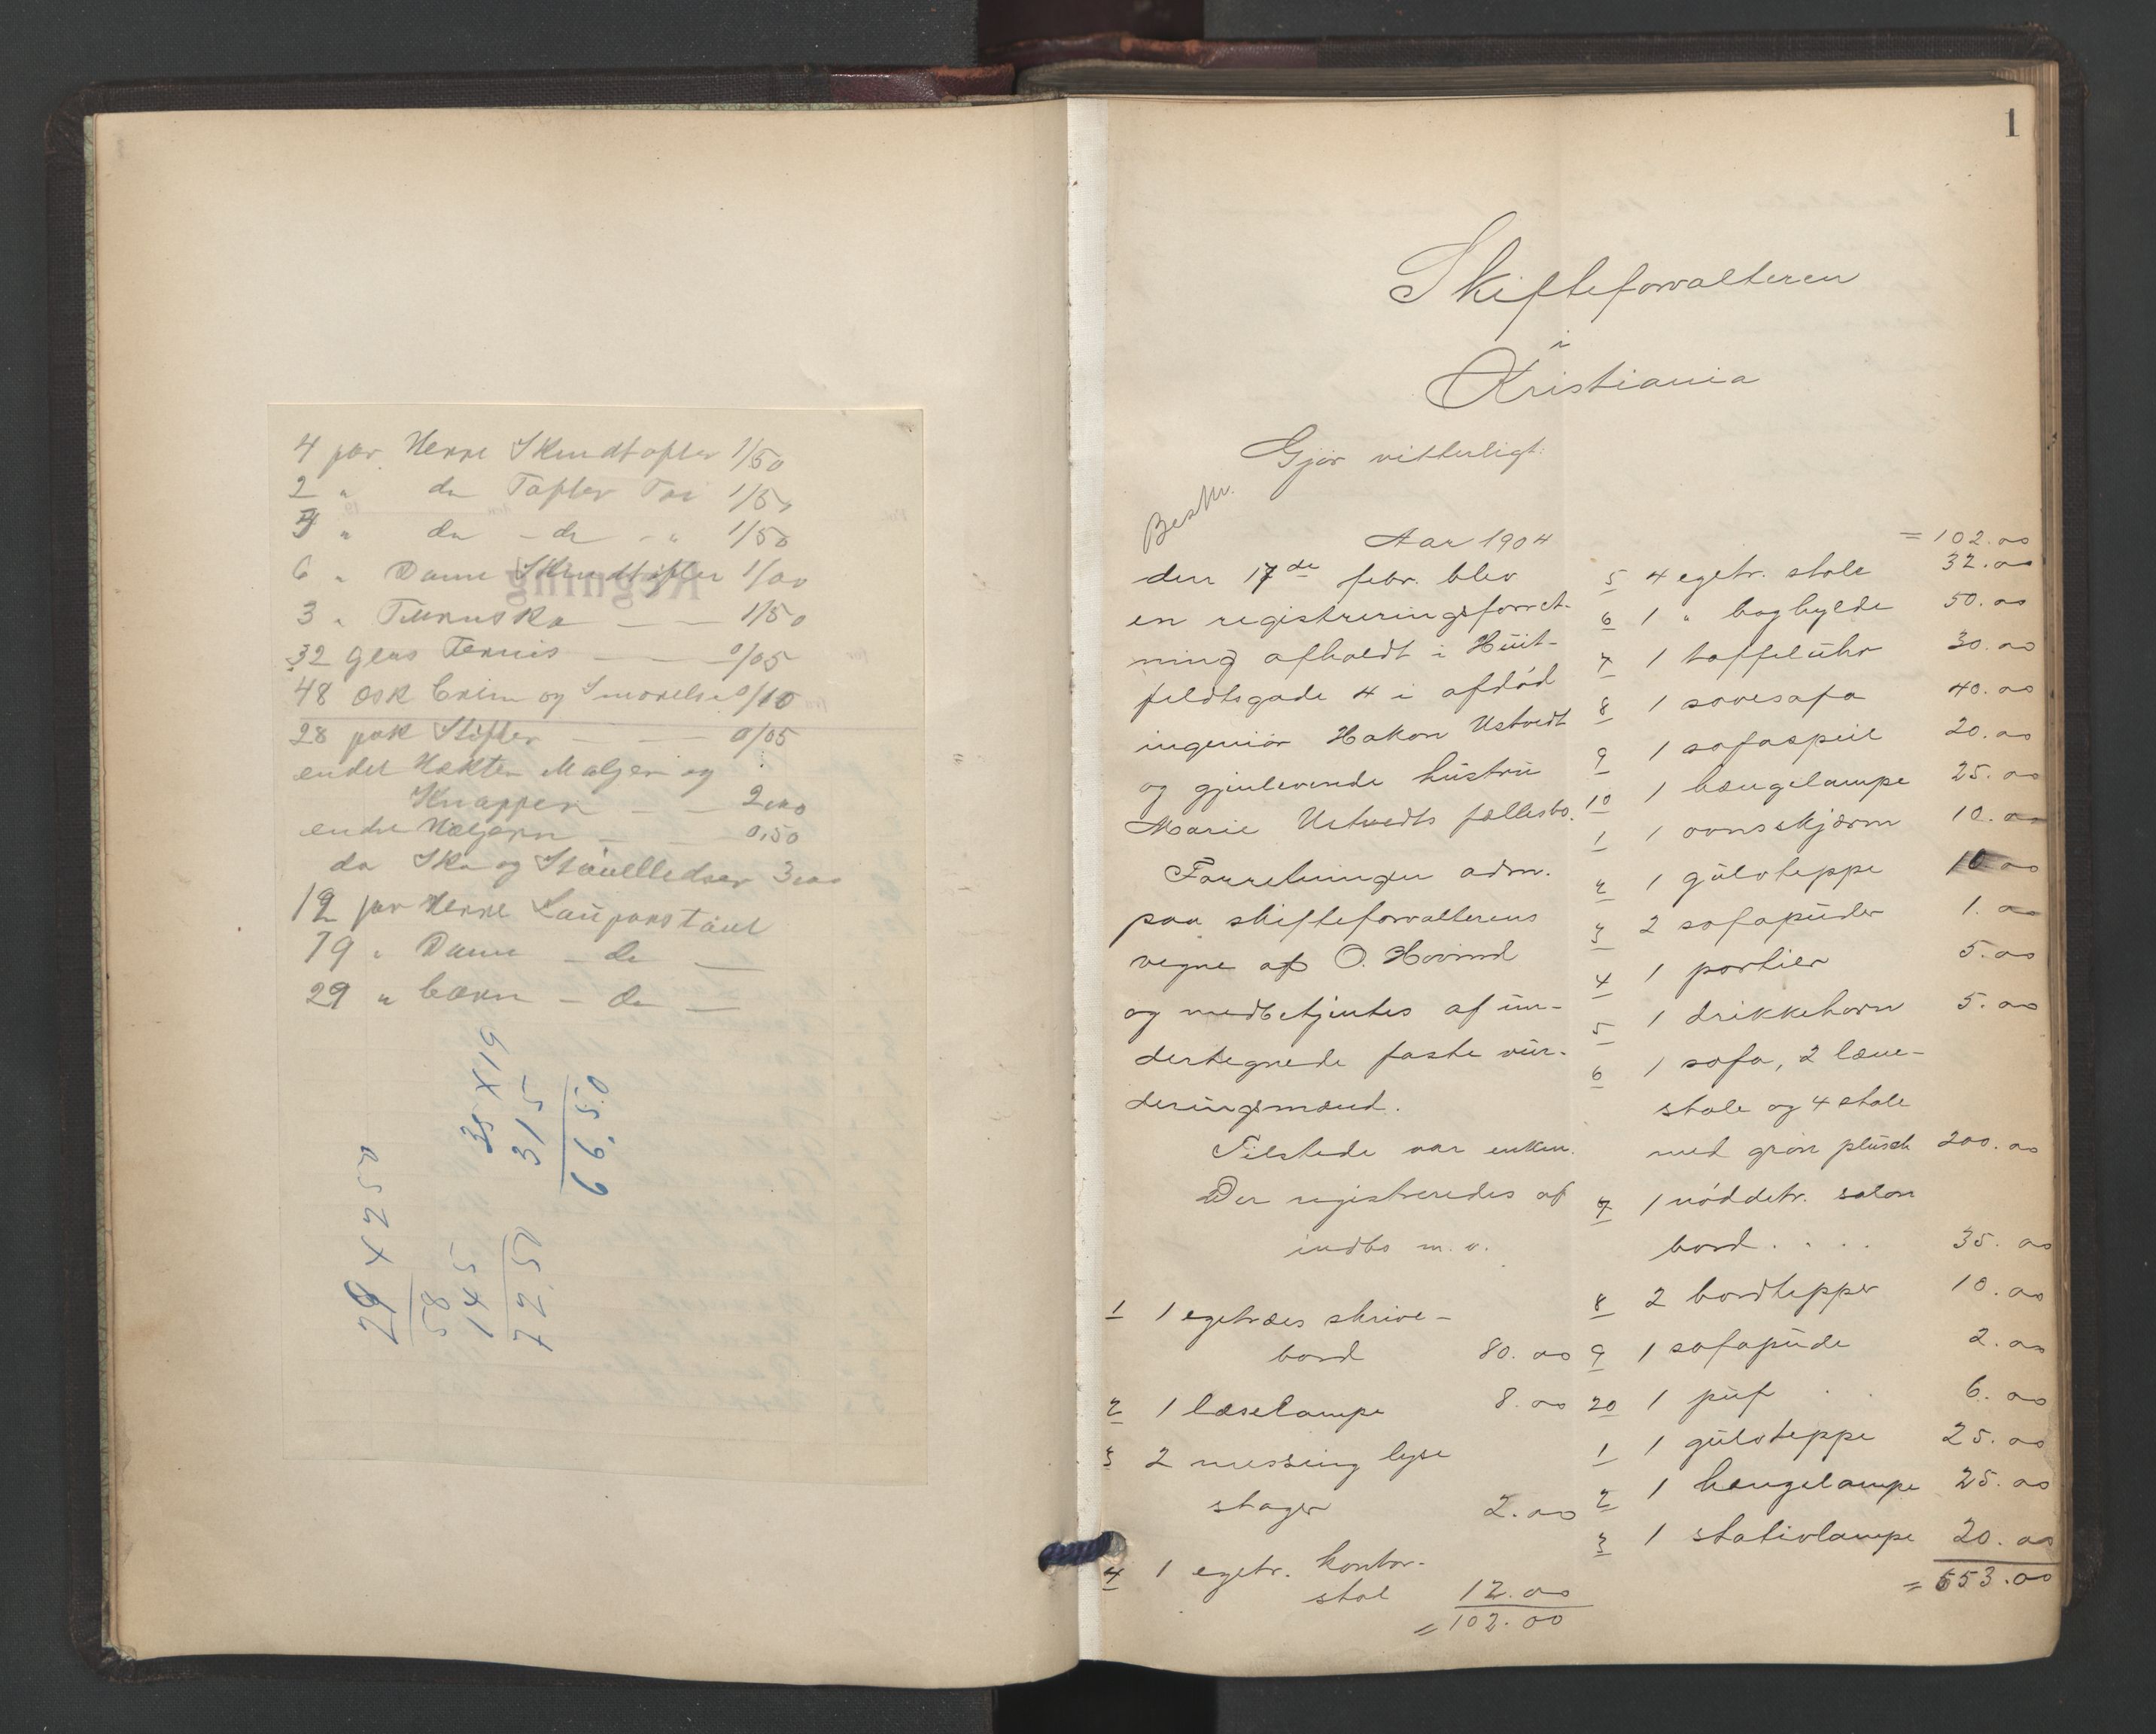 4 par Herre Skindtøfler 1/50
2 " do Tøfler Tøi 1/50
4 " do - do - " 1/50
6 " Dame Skindtøfler 1/00
3 " Turnsko — — 1/50
32 glas Fernis — — 0/05
48 æsk Crem og Smorelse 0/10
28 pak Stifter — — — 0/05
endel Hekter Maljer og
Knapper — — 2,00
endel — — 0,50
do Sko og Støvelledser 3,00
19 par Herre
19 " Dame - do —
29 " børn - do —
35 x 19
315
66,50
29 x 250
58
145
72.50
Regning
1
Skifteforvalteren
i
Kristiania
Gjør vitterligt:
Aar 1904
den 17de febr. blev
en registreringsforret-
ning afholdt i Huit-
feldtsgade 4 i afdød
ingeniør Hakon Ustvedt
og gjenlevende hustru
Marie Ustvedts fællesbo.
Forretningen adm.
paa skifteforvalterens
vegne af O. Hovind
og medbetjentes af un-
dertegnede faste vur-
deringsmænd.
Tilstede var enken.
Der registreredes af
indbo m. v.
1 1 egetræs skrive-
bord 80.00
2 1 læselampe 8.00
3 2 messing lyse
stager 2.00
4 1 egetr. kontor-
stol 12.00
= 102.00
= 102.00
5 4 egetr. stole 32.00
6 1 " boghylde 50.00
7 1 taffeluhr 30.00
8 1 sovesofa 40.00
9 1 sofaspeil 20.00
10 1 hængelampe 25.00
1 1 ovnsskjærm 10.00
2 1 gulvteppe 10.00
3 2 sofapuder 1.00
4 1 portier 5.00
5 1 drikkehorn 5.00
6 1 sofa, 2 læne-
stole og 4 stole
med grøn plusch 200.00
7 1 nøddetr. salon
bord . . . . 35.00
8 2 bordtepper 10.00
9 1 sofapude 2.00
20 1 puf . . 6.00
1 1 gulvteppe 25.00
2 1 hængelampe 25.00
3 1 stativlampe 20.00
= 653.00